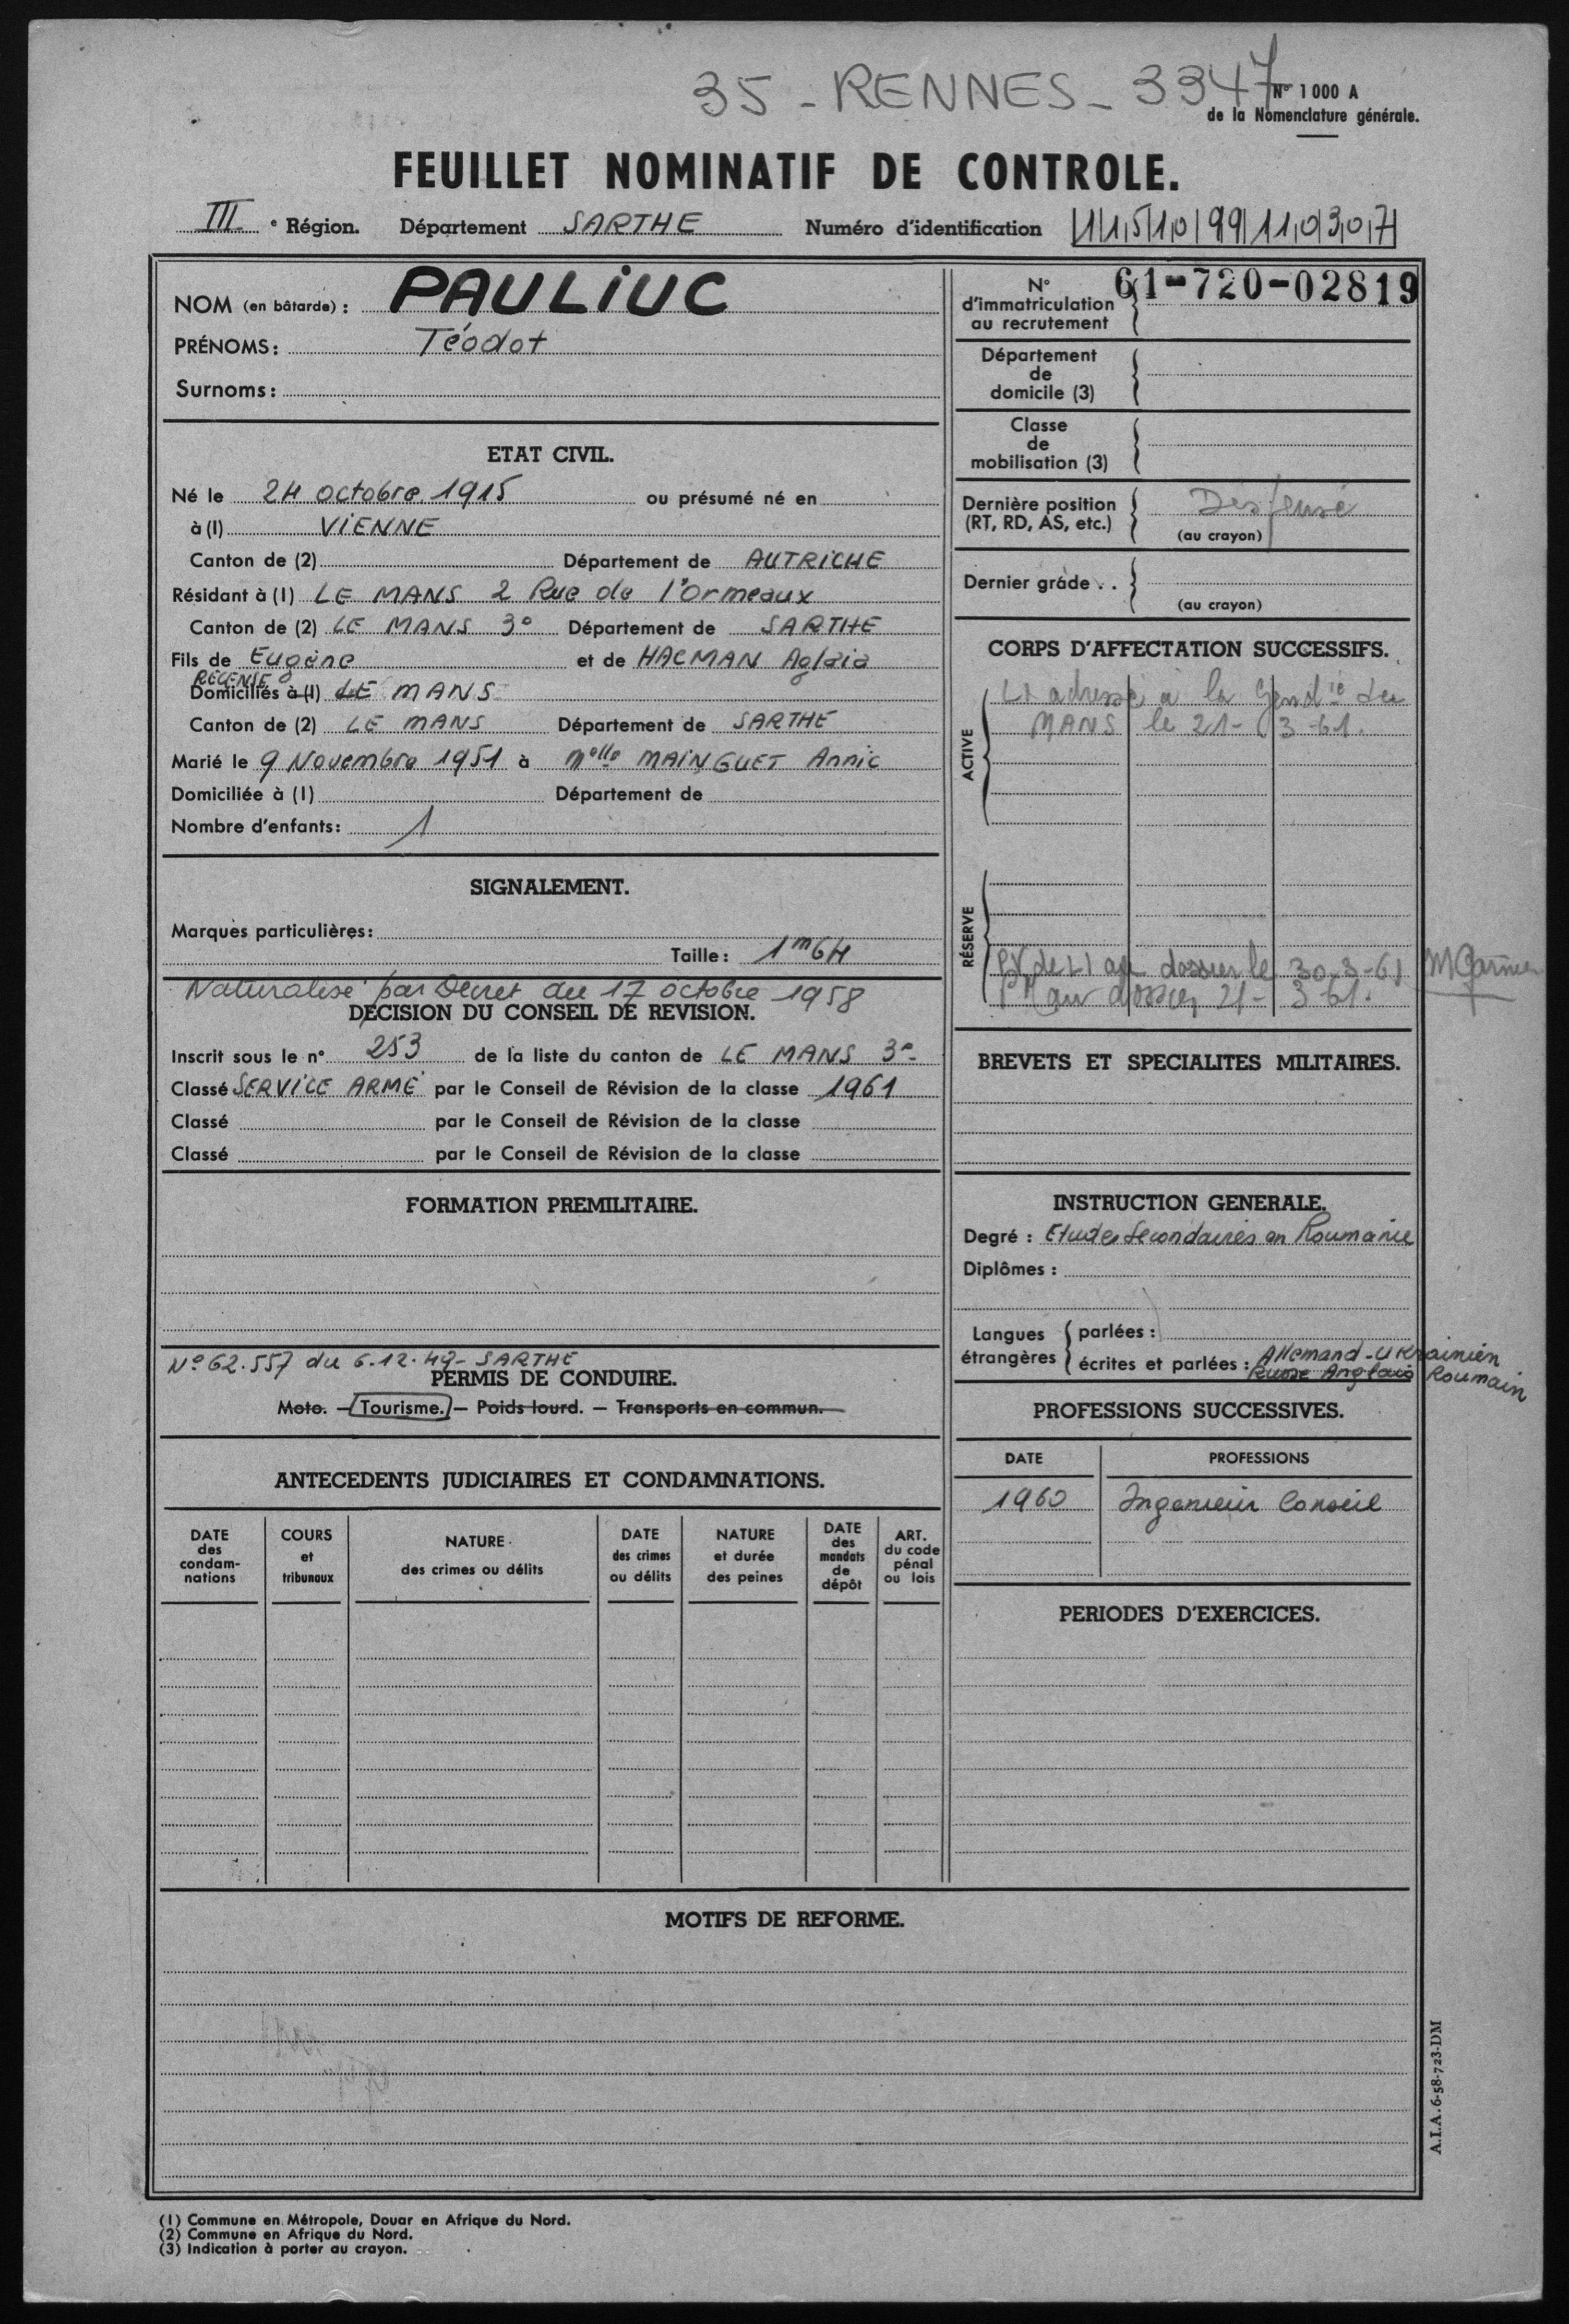 35 - RENNES - 3347
N° 1000 A
de la Nomenclature générale.
FEUILLET NOMINATIF DE CONTROLE.
III e Région. Département SARTHE Numéro d'identification 1 15 10 99 110 307
NOM (en bâtarde) : PAULIUC
PRÉNOMS : Téodot
Surnoms :
ETAT CIVIL.
Né le 24 octobre 1915 ou présumé né en
à (1) VIENNE
Canton de (2) Département de AUTRICHE
Résidant à (1) LE MANS 2 Rue de l'Ormeaux
Canton de (2) LE MANS 3° Département de SARTHE
Fils de Eugène et de HACMAN Aglaia
RECENSE à
Domiciliés à (1) LE MANS
Canton de (2) LE MANS Département de SARTHE
Marié le 9 Novembre 1951 à Melle MAINGUET Annic
Domiciliée à (1) Département de
Nombre d'enfants : 1
SIGNALEMENT.
Marques particulières :
Taille : 1m64
Naturalisé par Décret du 17 octobre 1958
DECISION DU CONSEIL DE REVISION.
Inscrit sous le n° 253 de la liste du canton de LE MANS 3e
Classé SERVICE ARMÉ par le Conseil de Révision de la classe 1961
Classé par le Conseil de Révision de la classe
Classé par le Conseil de Révision de la classe
FORMATION PREMILITAIRE.
N° 62.557 du 6.12.49 - SARTHE
PERMIS DE CONDUIRE.
Moto. — Tourisme. — Poids lourd. — Transports en commun.
ANTECEDENTS JUDICIAIRES ET CONDAMNATIONS.
DATE des condam-nations
COURS et tribunaux
NATURE des crimes ou délits
DATE des crimes ou délits
NATURE et durée des peines
DATE des mandats de dépôt
ART. du code pénal ou lois
N° d'immatriculation au recrutement 61-720-02819
Département de domicile (3)
Classe de mobilisation (3)
Dernière position (RT, RD, AS, etc.) Dispensé
(au crayon)
Dernier grade . .
(au crayon)
CORPS D'AFFECTATION SUCCESSIFS.
ACTIVE
LI adressé à la Gendie du
MANS le 21-3-61.
RÉSERVE
PV de LI au dossier le 30-3-61
au dossier 21-3 61.
BREVETS ET SPECIALITES MILITAIRES.
INSTRUCTION GENERALE.
Degré : Etudes Secondaires en Roumanie
Diplômes :
Langues étrangères
parlées :
écrites et parlées : Allemand - Ukrainien
Russe Anglais Roumain
PROFESSIONS SUCCESSIVES.
DATE PROFESSIONS
1960 Ingenieur Conseil
PERIODES D'EXERCICES.
MOTIFS DE REFORME.
A.I.A. 6-58-723-DM
(1) Commune en Métropole, Douar en Afrique du Nord.
(2) Commune en Afrique du Nord.
(3) Indication à porter au crayon.